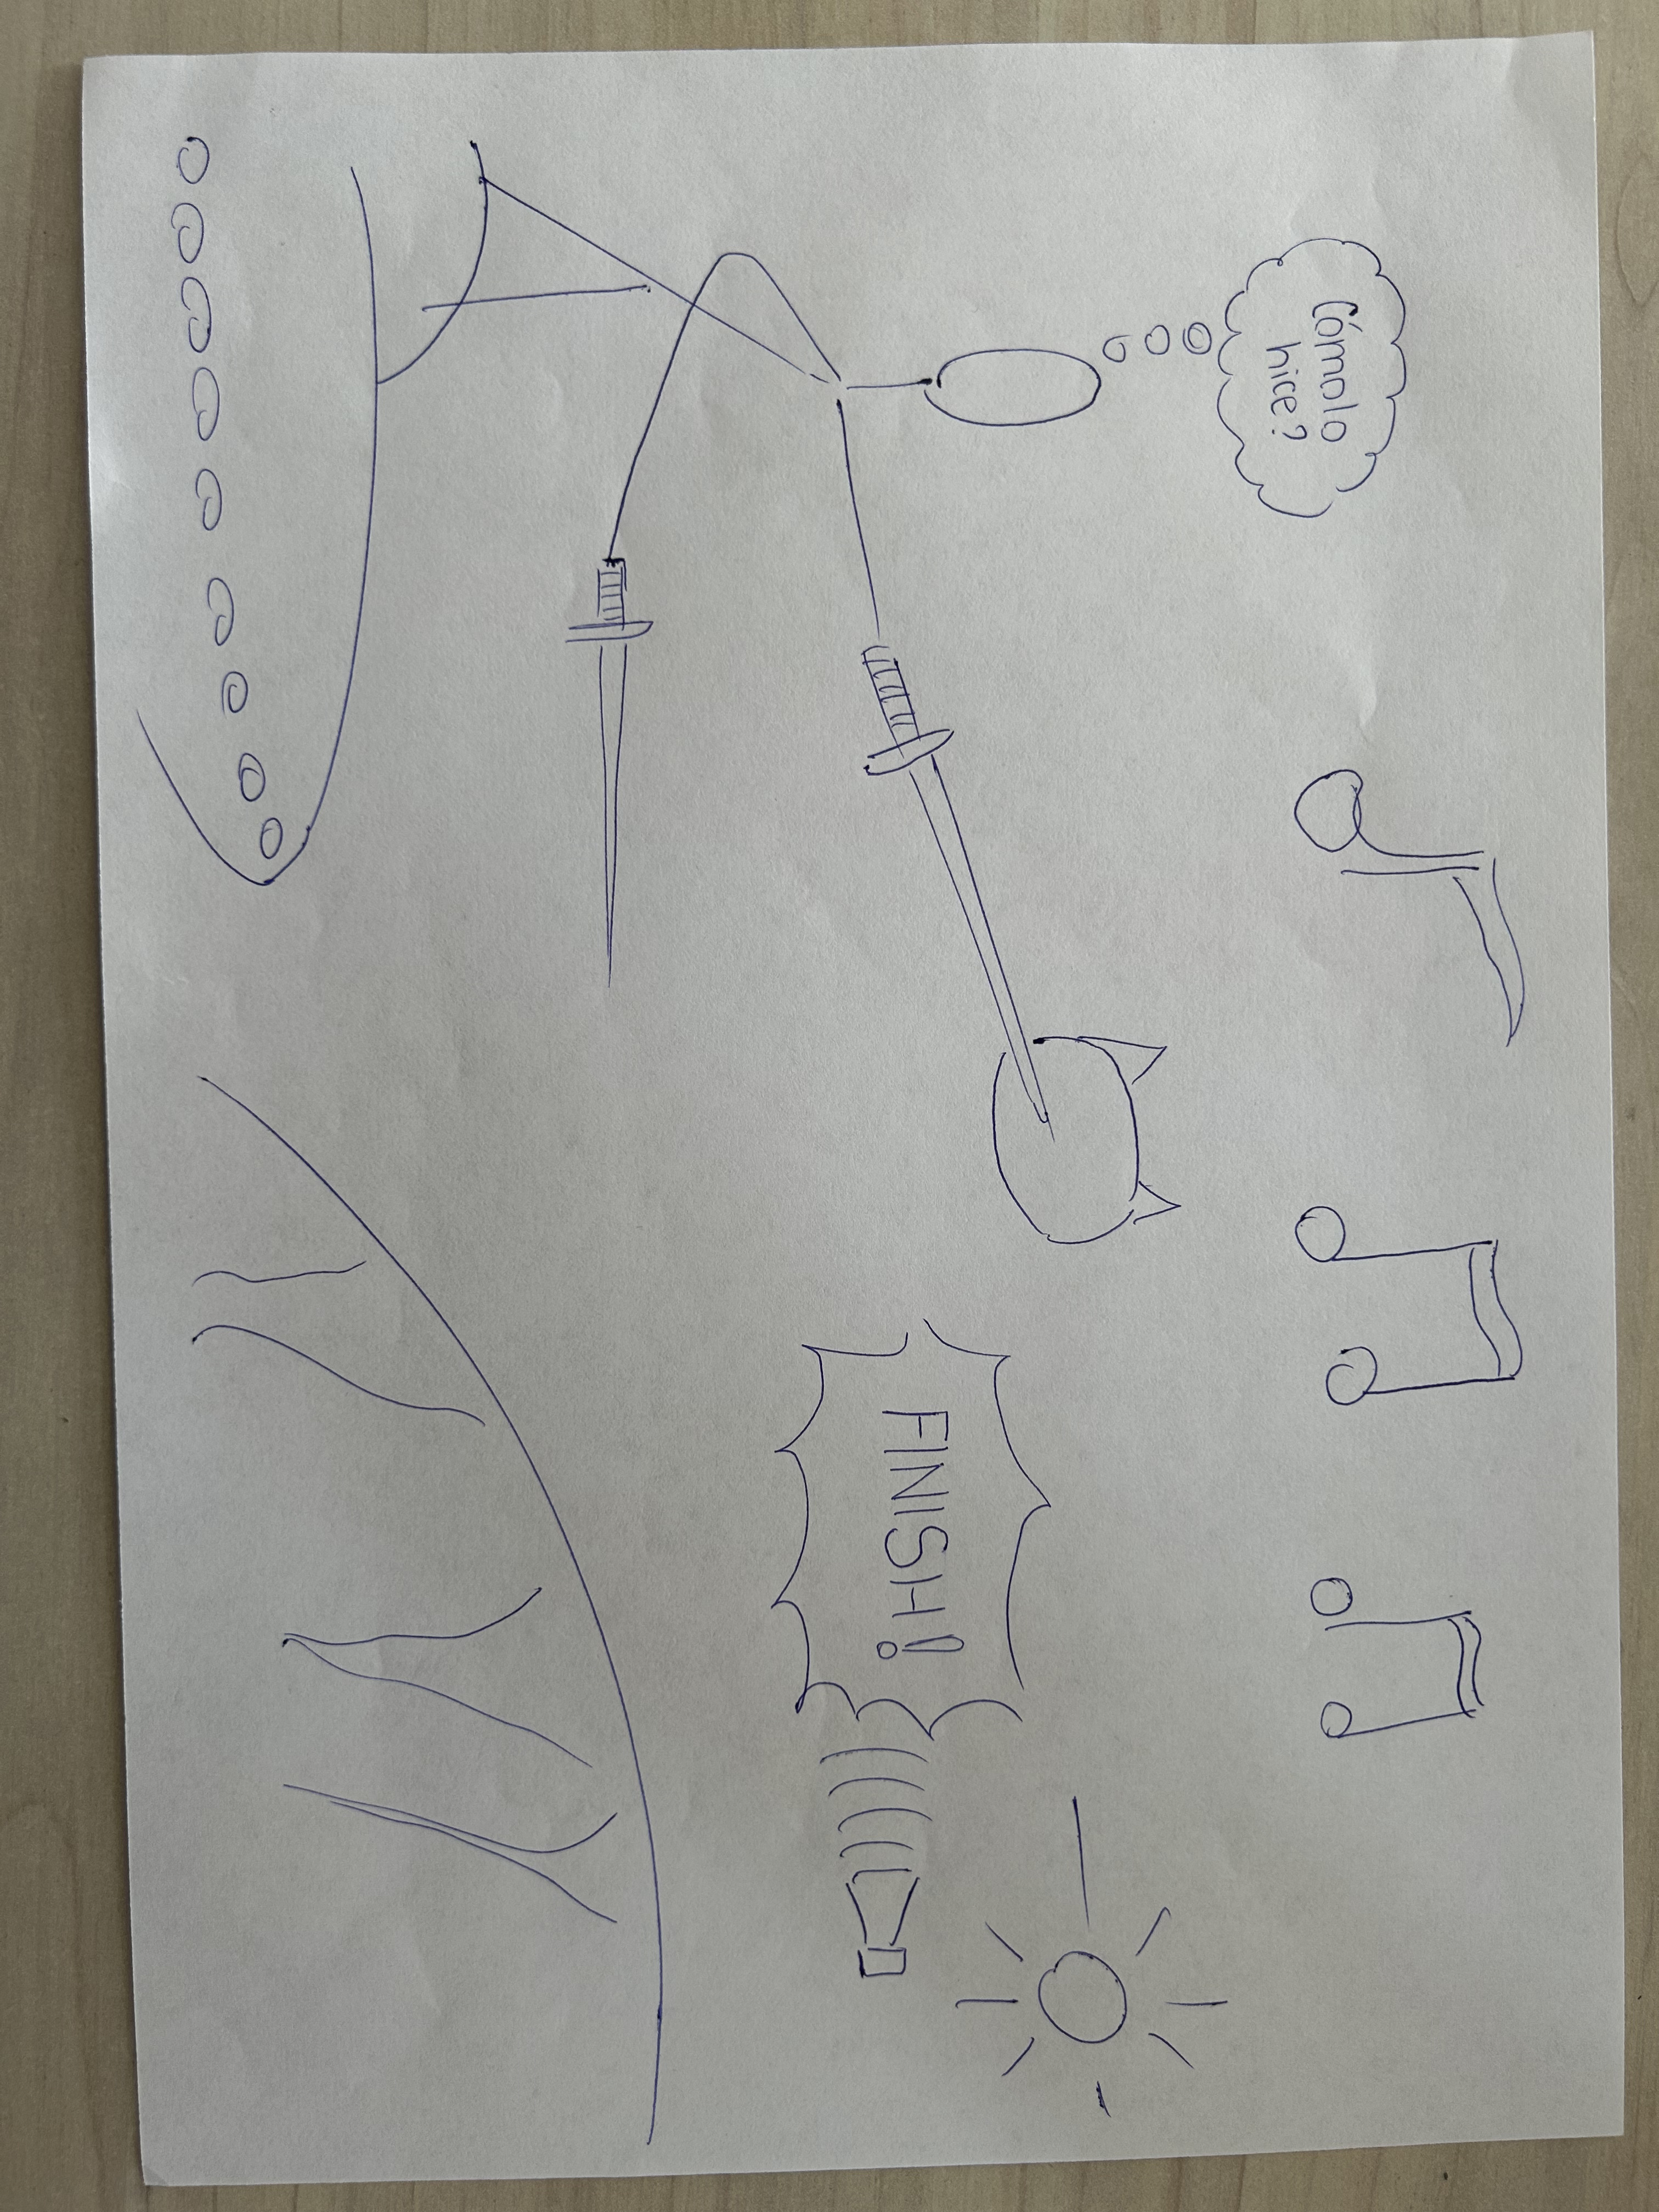 Cómo lo
hice?
FINISH!